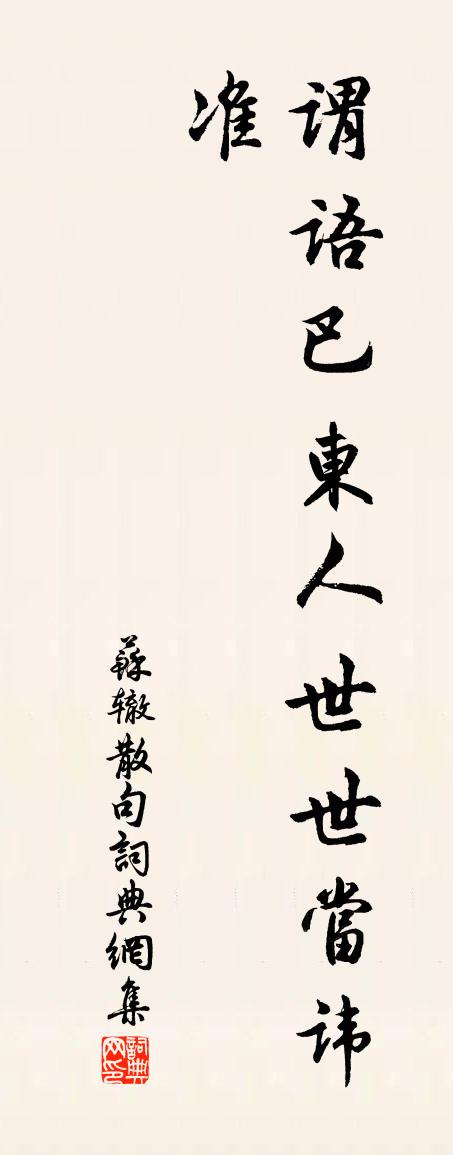 謂語巴東人世世當讳
准
蘇辙散句詞典網集
詞典
网印